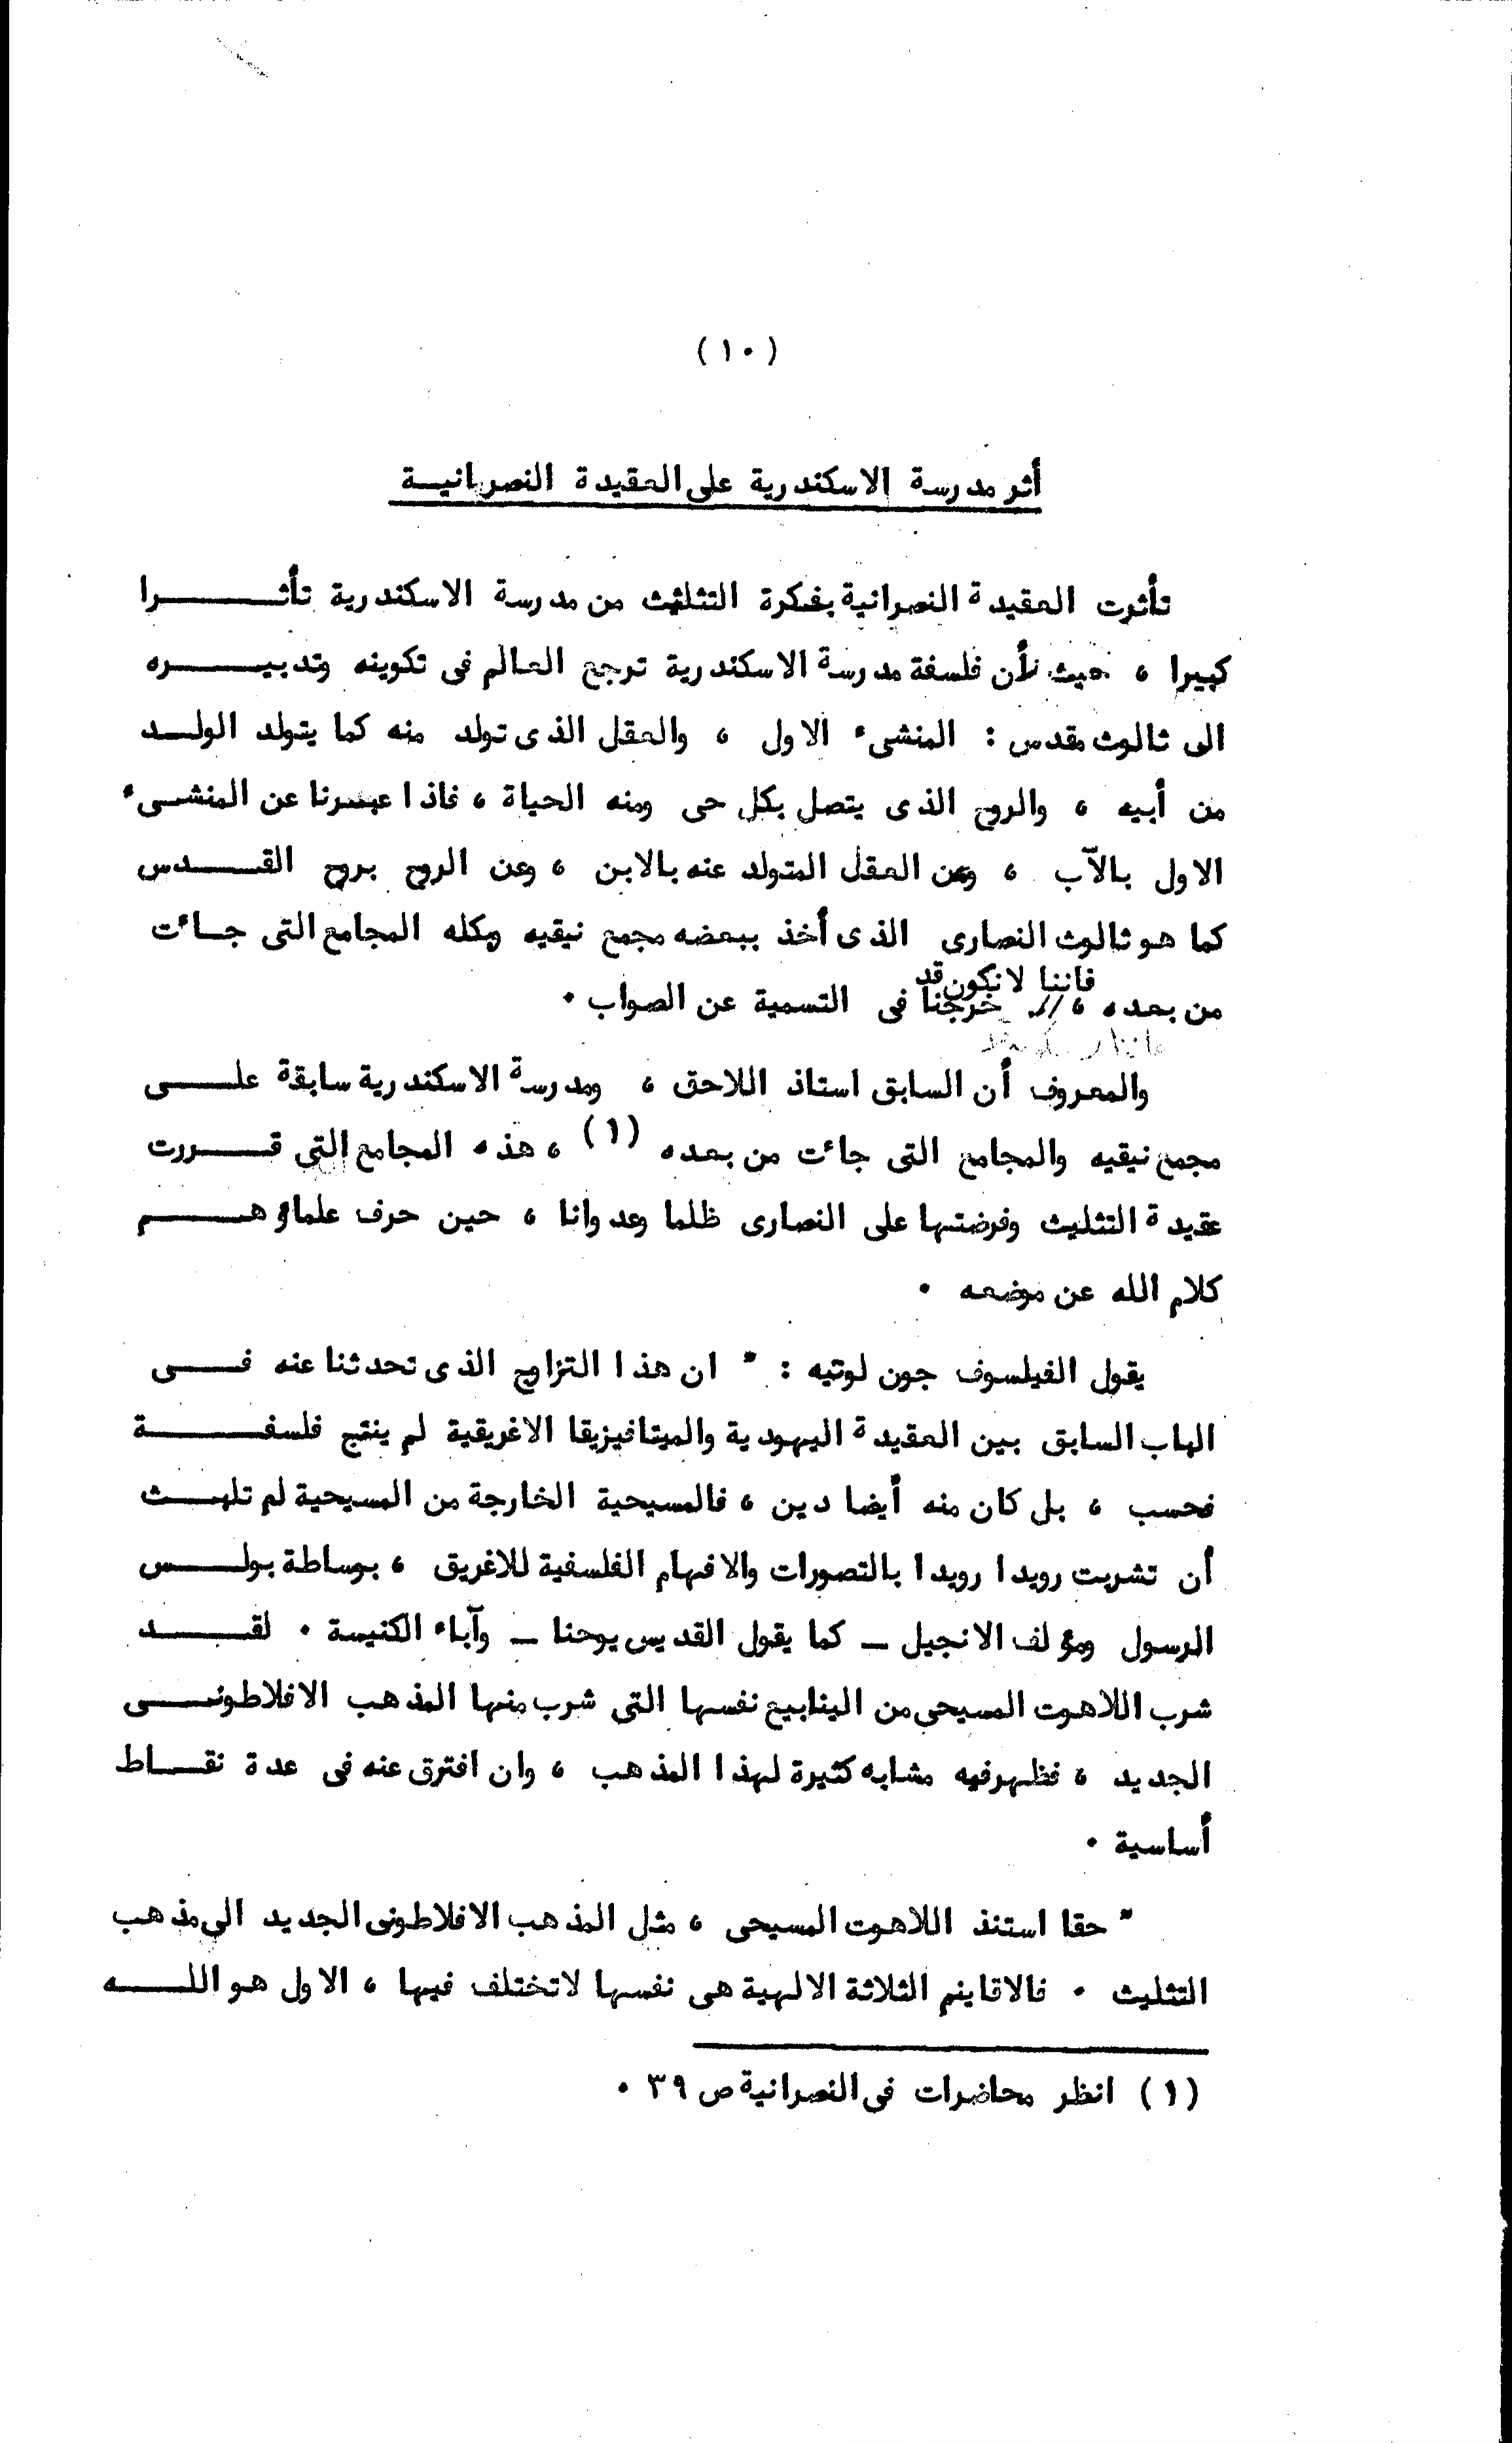 (١٠)
أثر مدرسة الاسكندرية على العقيدة النصرانية
تأثرت العقيدة النصرانية بفكرة التثليث من مدرسة الاسكندرية تأثرا
كبيرا ، حيث أن فلسفة مدرسة الاسكندرية ترجع العالم فى تكوينه وتدبيره
الى ثالوث مقدس : المنشىء الاول ، والعقل الذى تولد منه كما يتولد الولد
من أبيه ، والروح الذى يتصل بكل حى ومنه الحياة ، فاذا عبرنا عن المنشىء
الاول بالآب ، وعن العقل المتولد عنه بالابن ، وعن الروح بروح القدس
كما هو ثالوث النصارى الذى أخذ ببعضه مجمع نيقيه وبكله المجامع التى جائت
فاننا لا نكون قد
من بعده ، خرجنا فى التسمية عن الصواب .
والمعروف أن السابق استاذ اللاحق ، ومدرسة الاسكندرية سابقة على
مجمع نيقيه والمجامع التى جائت من بعده (١) ، هذه المجامع التى قررت
عقيدة التثليث وفرضتها على النصارى ظلما وعدوانا ، حين حرف علماؤهم
كلام الله عن موضعه .
يقول الفيلسوف جون لوتيه : " ان هذا التزاوج الذى تحدثنا عنه فى
الباب السابق بين العقيدة اليهودية والميتافيزيقا الاغريقية لم ينتج فلسفة
فحسب ، بل كان منه أيضا دين ، فالمسيحية الخارجة من المسيحية لم تلبث
أن تشربت رويدا رويدا بالتصورات والافهام الفلسفية للاغريق ، بوساطة بولس
الرسول ومؤلف الانجيل ـ كما يقول القديس يوحنا ـ وآباء الكنيسة . لقد
شرب اللاهوت المسيحى من الينابيع نفسها التى شرب منها المذهب الافلاطونى
الجديد ، فظهر فيه مشابه كثيرة لهذا المذهب ، وان افترق عنه فى عدة نقاط
أساسية .
" حقا استند اللاهوت المسيحى ، مثل المذهب الافلاطونى الجديد الى مذهب
التثليث . فالاقاينم الثلاثة الالهية هى نفسها لاتختلف فيها ، الاول هو الله
(١) انظر محاضرات فى النصرانية ص ٣٩ .